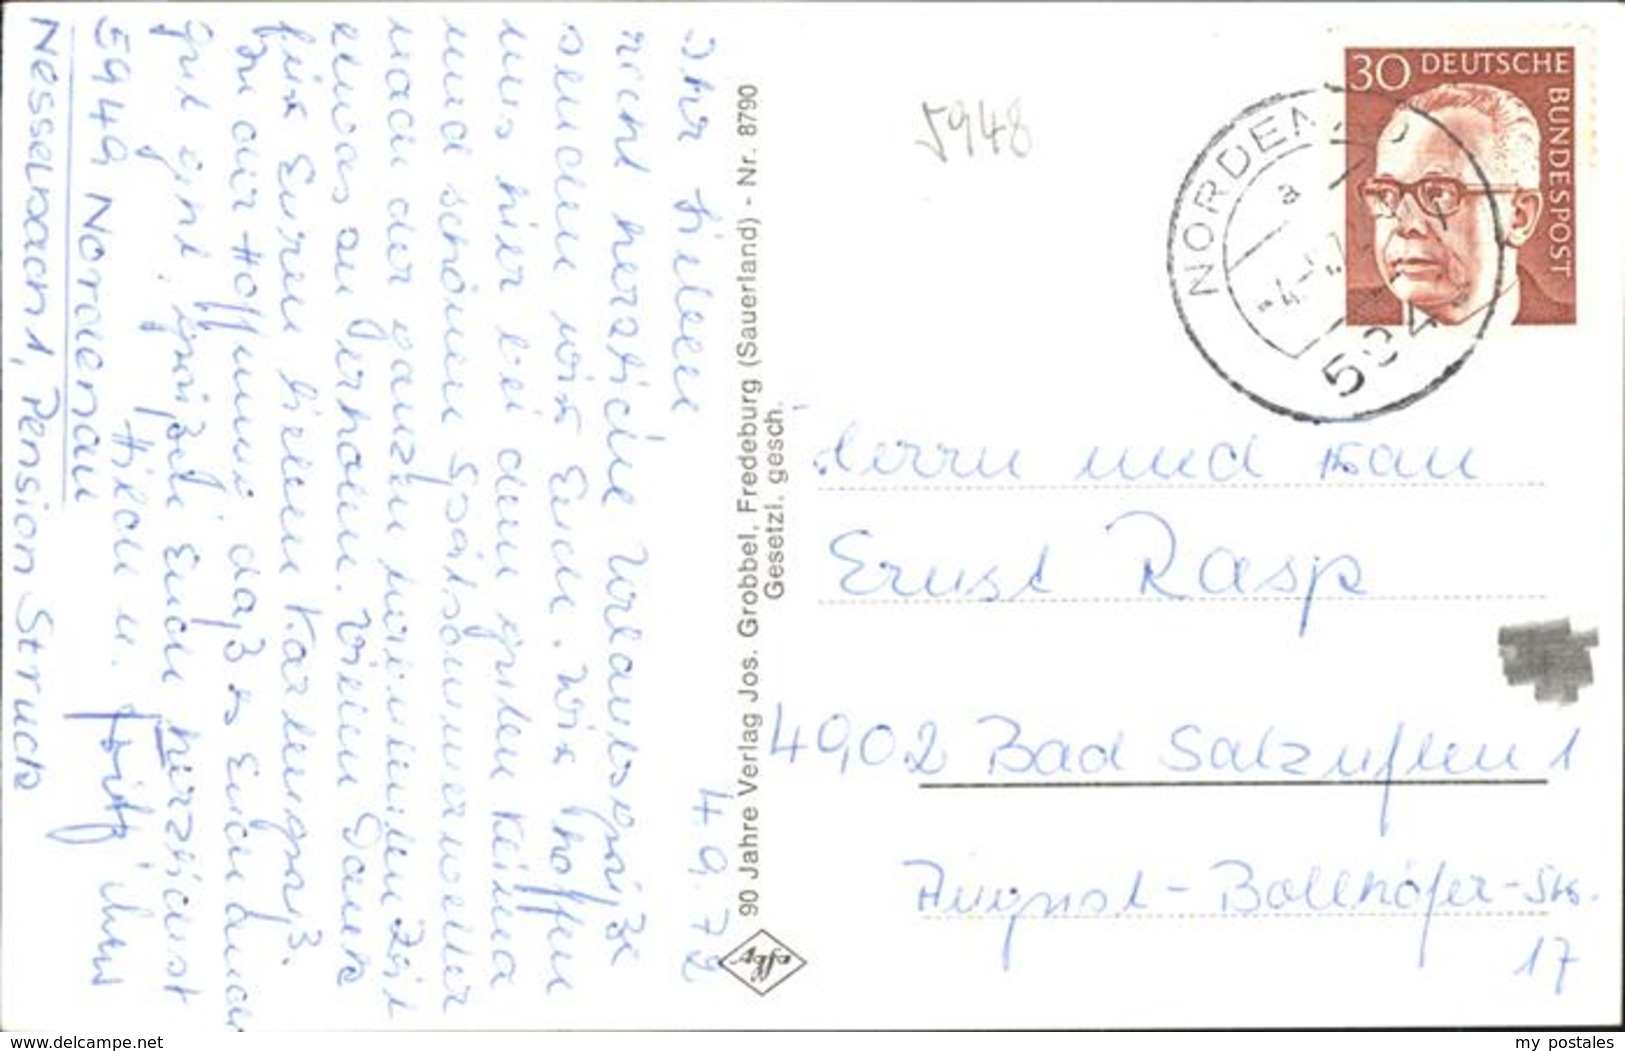 4.9.72
Ihr Lieben
recht herzliche Urlaubsgrüße
senden wir Euch. Wir hoffen
uns hier bei dem guten Klima
und schönen Spätsommerwetter
nach der ganzen turbulenten Zeit
etwas zu erholen. Vielen Dank
für Euren lieben Kartengruß.
In der Hoffnung, daß es Euch auch
gut geht, grüßen Euch herzlichst
Hilde u. Fritz
5949 Nordenau
Nesselbach 1, Pension Struck
90 Jahre Verlag Jos. Grobbel, Fredeburg (Sauerland) - Nr. 8790
Gesetzl. gesch.
5948
30 DEUTSCHE
BUNDESPOST
NORDENAU
a
594
Herrn und Frau
Ernst Rasp
4902 Bad Salzuflen 1
August-Bollhöfer-Str.
17
www.delcampe.net
my_postales